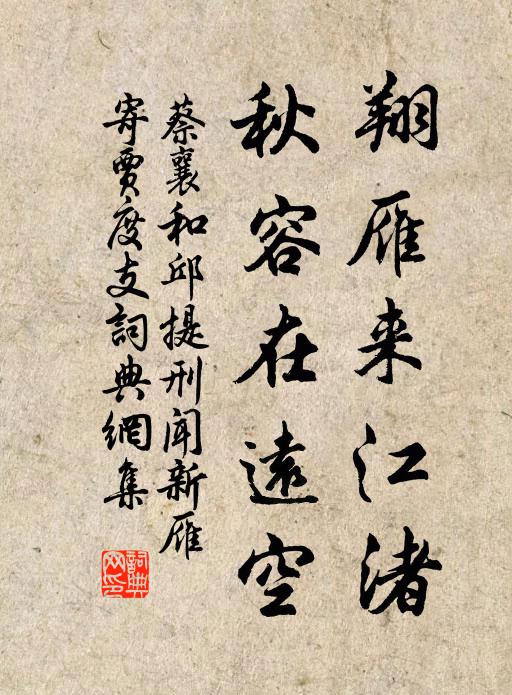 翔雁来江渚
秋容在遠空
蔡襄和邱提刑闻新雁
寄賈度支詞典網集
詞典网印